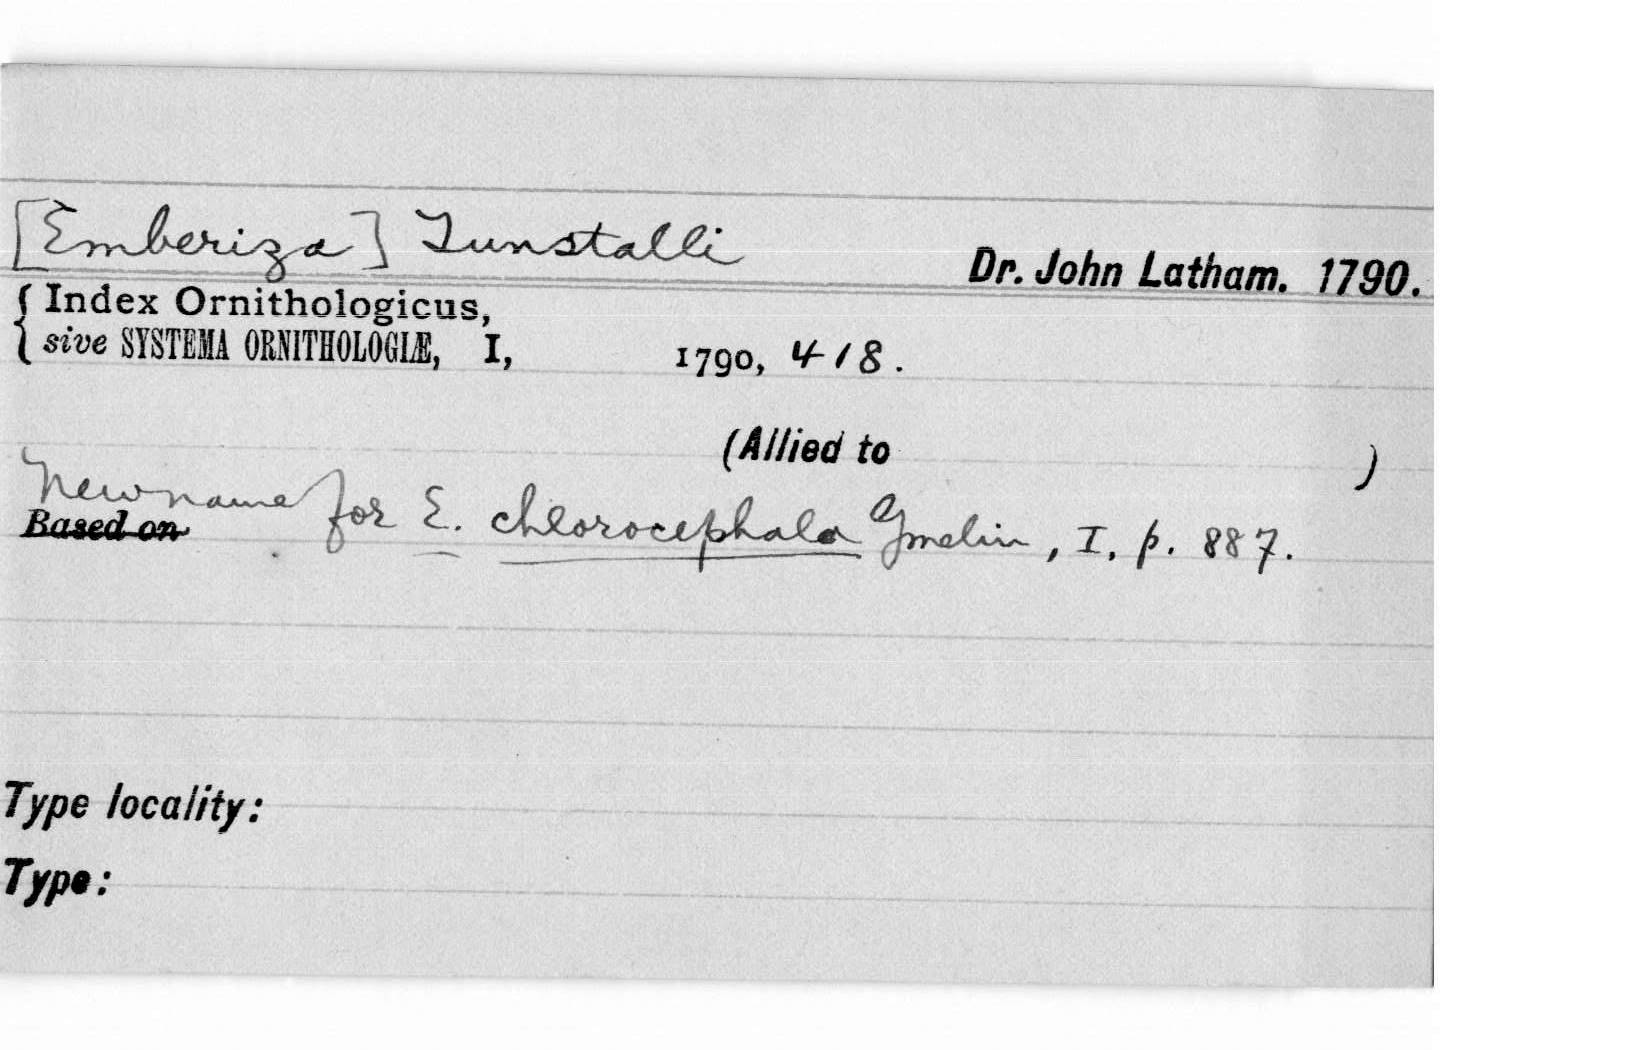 [Emberiza] Tunstalli
Dr. John Latham. 1790.
Index Ornithologicus,
sive SYSTEMA ORNITHOLOGIÆ, I, 1790, 418.
(Allied to )
New name for E. chlorocephala Gmelin, I, p. 887.
Based on
Type locality:
Type: